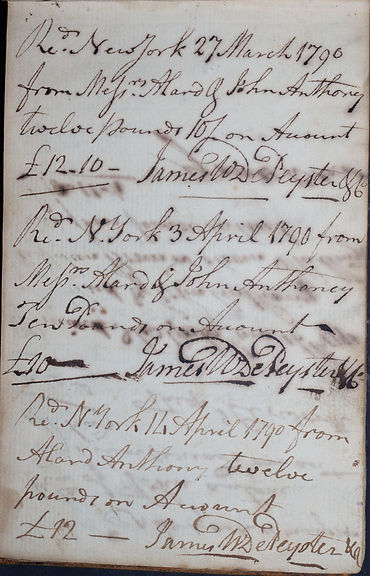 Recd. New York 27 March 1790
from Messrs. Alard & John Anthony
twelve pounds 10/ on Account
£12-10- James W DePeyster & Co
Recd. N. York 3 April 1790 from
Messrs. Alard & John Anthoney
Ten Pounds on Account
£10 James W DePeyster & Co
Recd. N. York 14 April 1790 from
Alard Anthony twelve
pounds on Account
£12 — James W DePeyster & Co